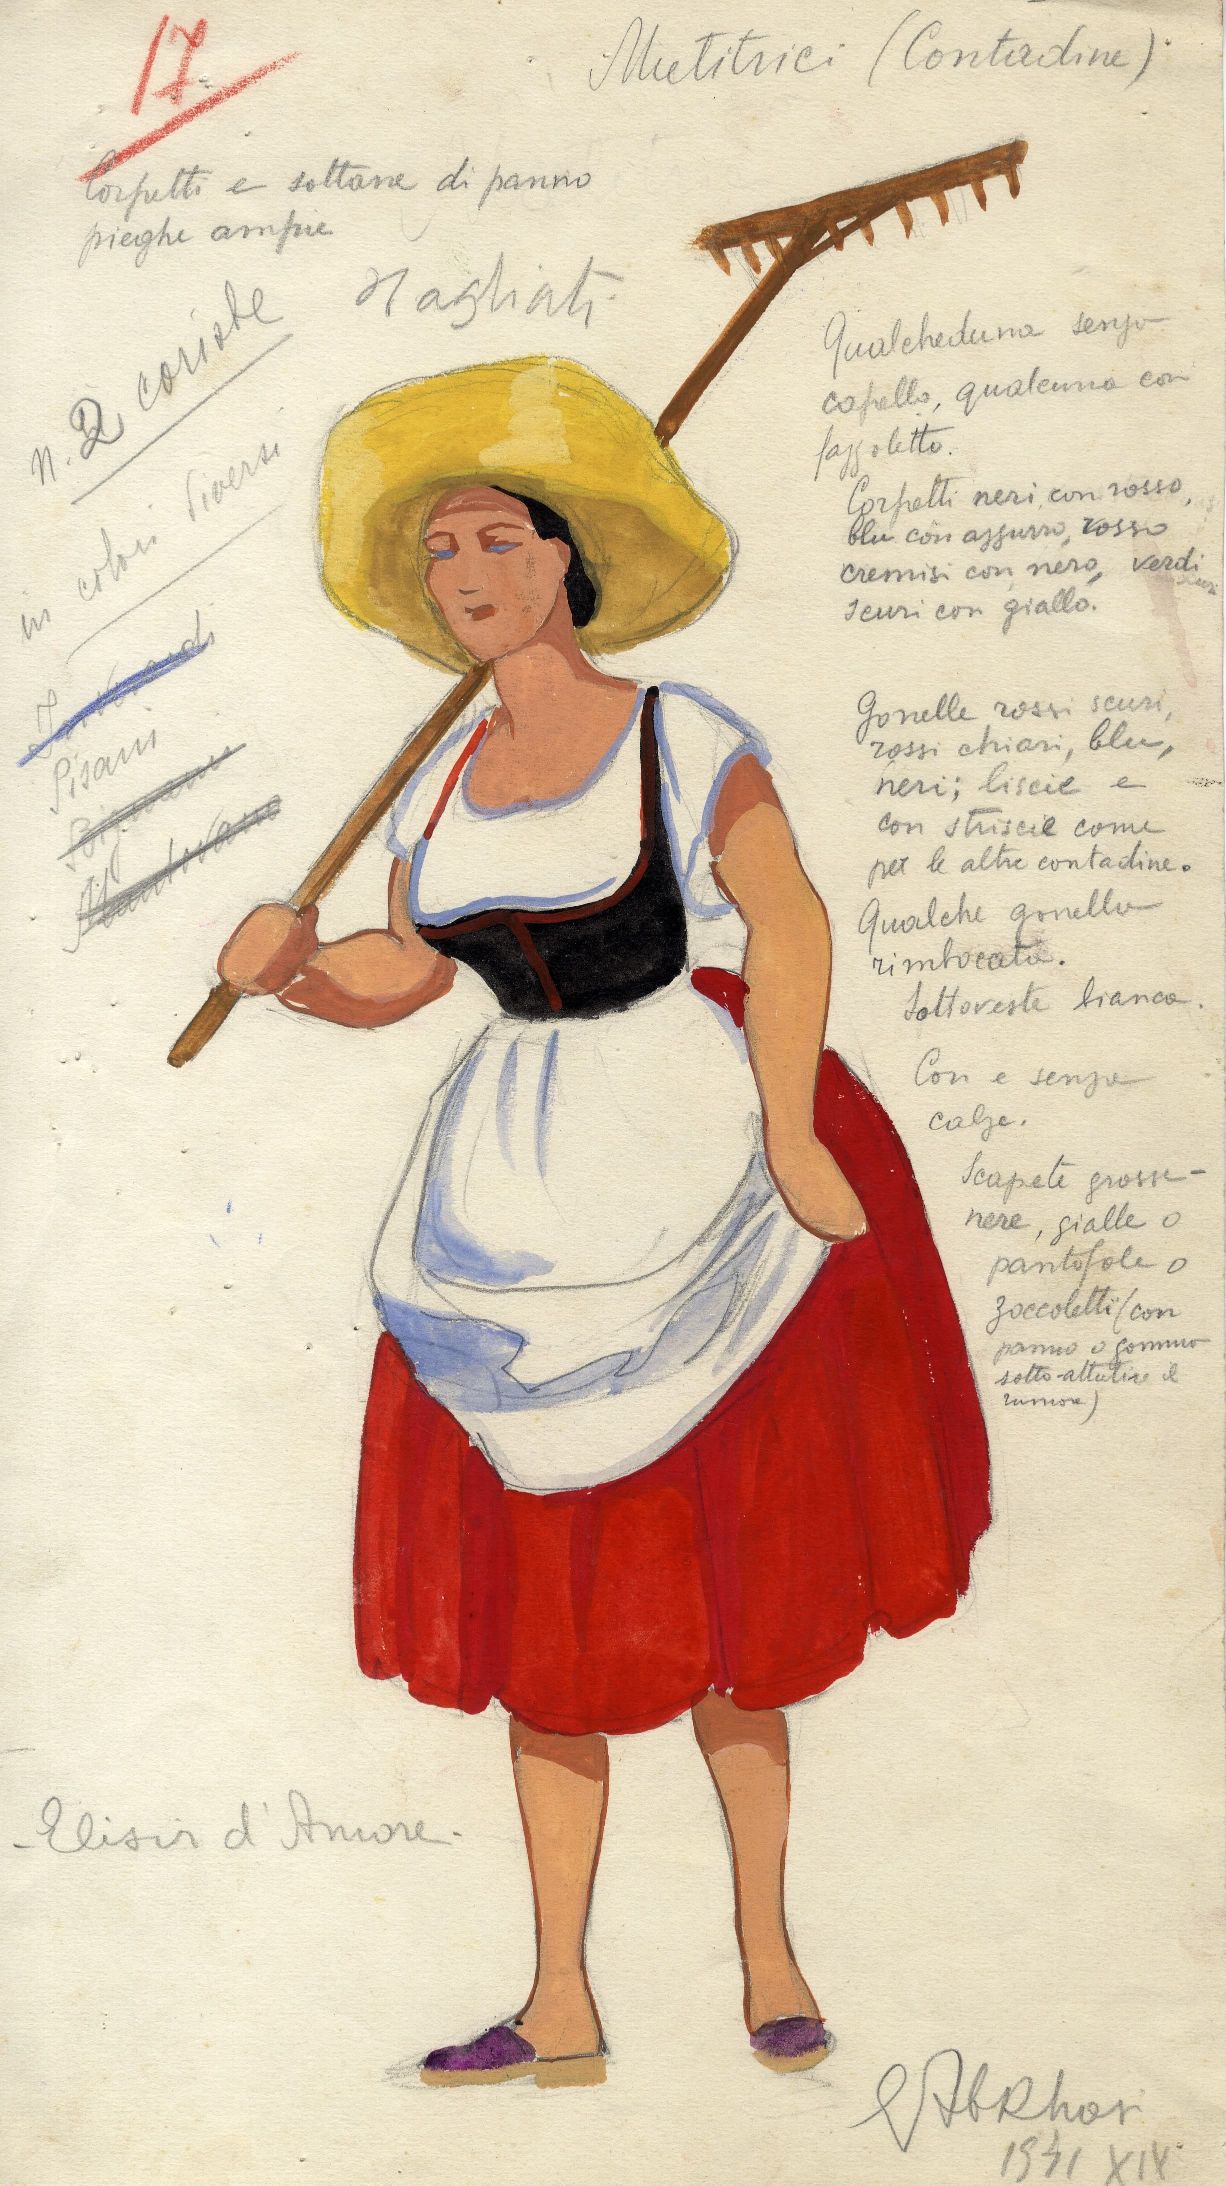 17.
Mietitrici (Contadine)
Corpetti e sottane di panno
pieghe ampie
Tagliati
n. 2 coriste
in colori diversi
Pisani
Qualcheduna senza
capello, qualcuna con
fazzoletto.
Corpetti neri con rosso,
blu con azzurro, rosso
cremisi con nero, verdi
scuri con giallo.
Gonelle rossi scuri,
rossi chiari, blu,
neri; liscie e
con striscie come
per le altre contadine.
Qualche gonella
rimbocata.
Sottoveste bianca.
Con e senza
calze.
Scapete grosse
nere, gialle o
pantofole o
zoccoletti (con
panno o gomma
sotto attutire il
rumore)
- Elisir d'Amore -
1941 XIX